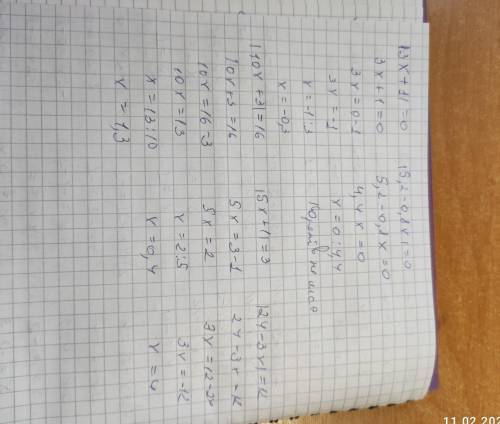 |3x+1|=0
3x+1=0
3x=0-1
3x=-1
x=-1:3
x=-0,3
|5,2-0,8x|=0
5,2-0,8x=0
4,4x=0
x=0:4,4
|10x+3|=16
10x+3=16
10x=16-3
10x=13
x=13:10
x=1,3
|5x+1|=3
5x=3-1
5x=2
x=2:5
x=0,4
|24-3x|=12
24-3x=12
3x=12-24
3x=-12
x=4
11.02.202